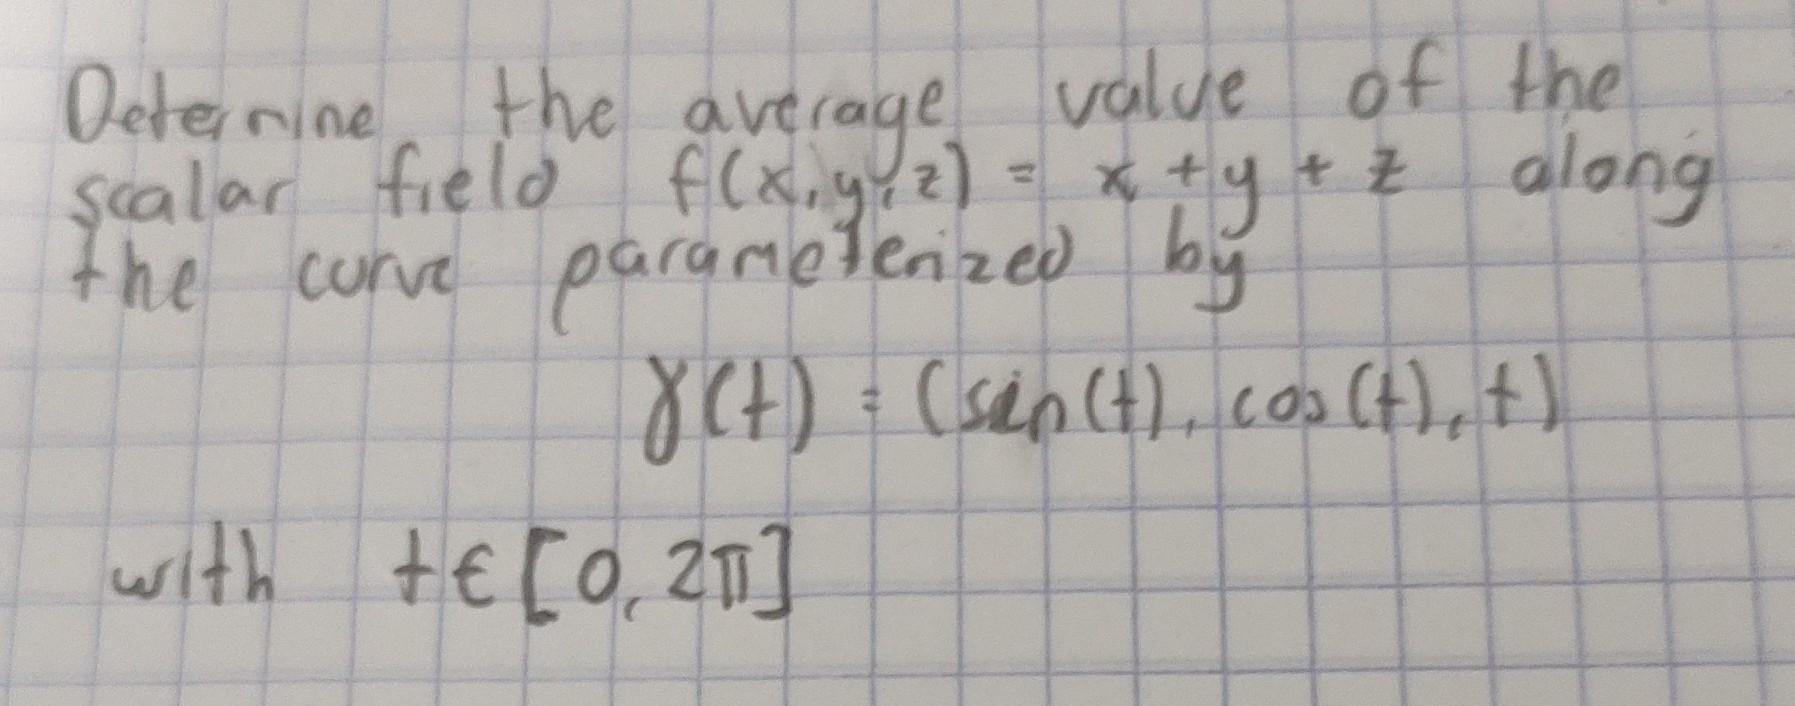 Determine the average value of the
scalar field f(x,y,z) = x + y + z along
the curve parameterized by
γ(t) = (sin(t), cos(t), t)
with t ∈ [0, 2π]